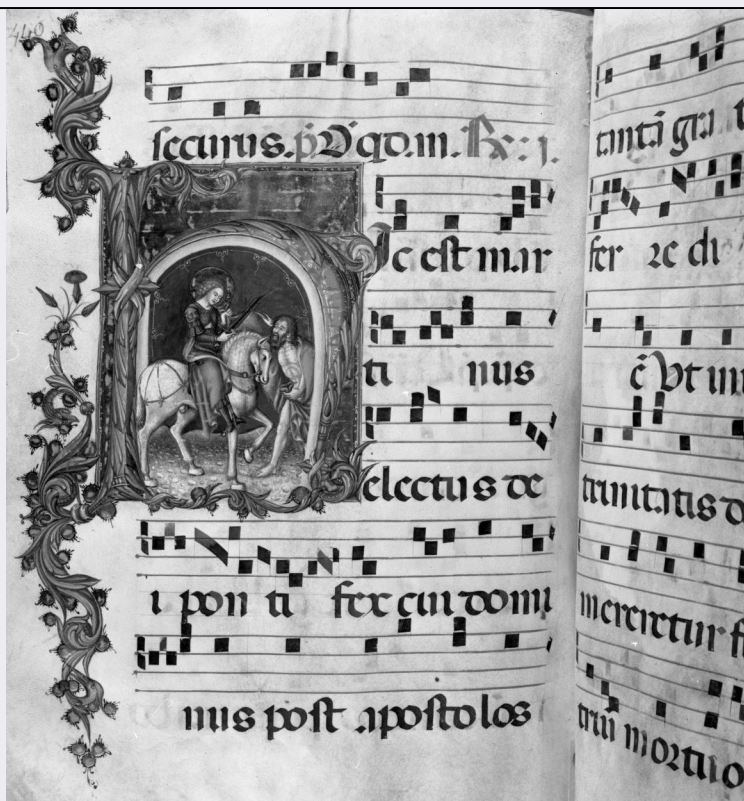 440
securus. p̄ qđ.m. Rx: j.
H Ic est mar
ti nus
electus de
i pon ti fex cui domi
nus post apostolos
tantā gra t
fer re di
c̄ Vt in
trinitatis d
mereretur fi
triū mortuo